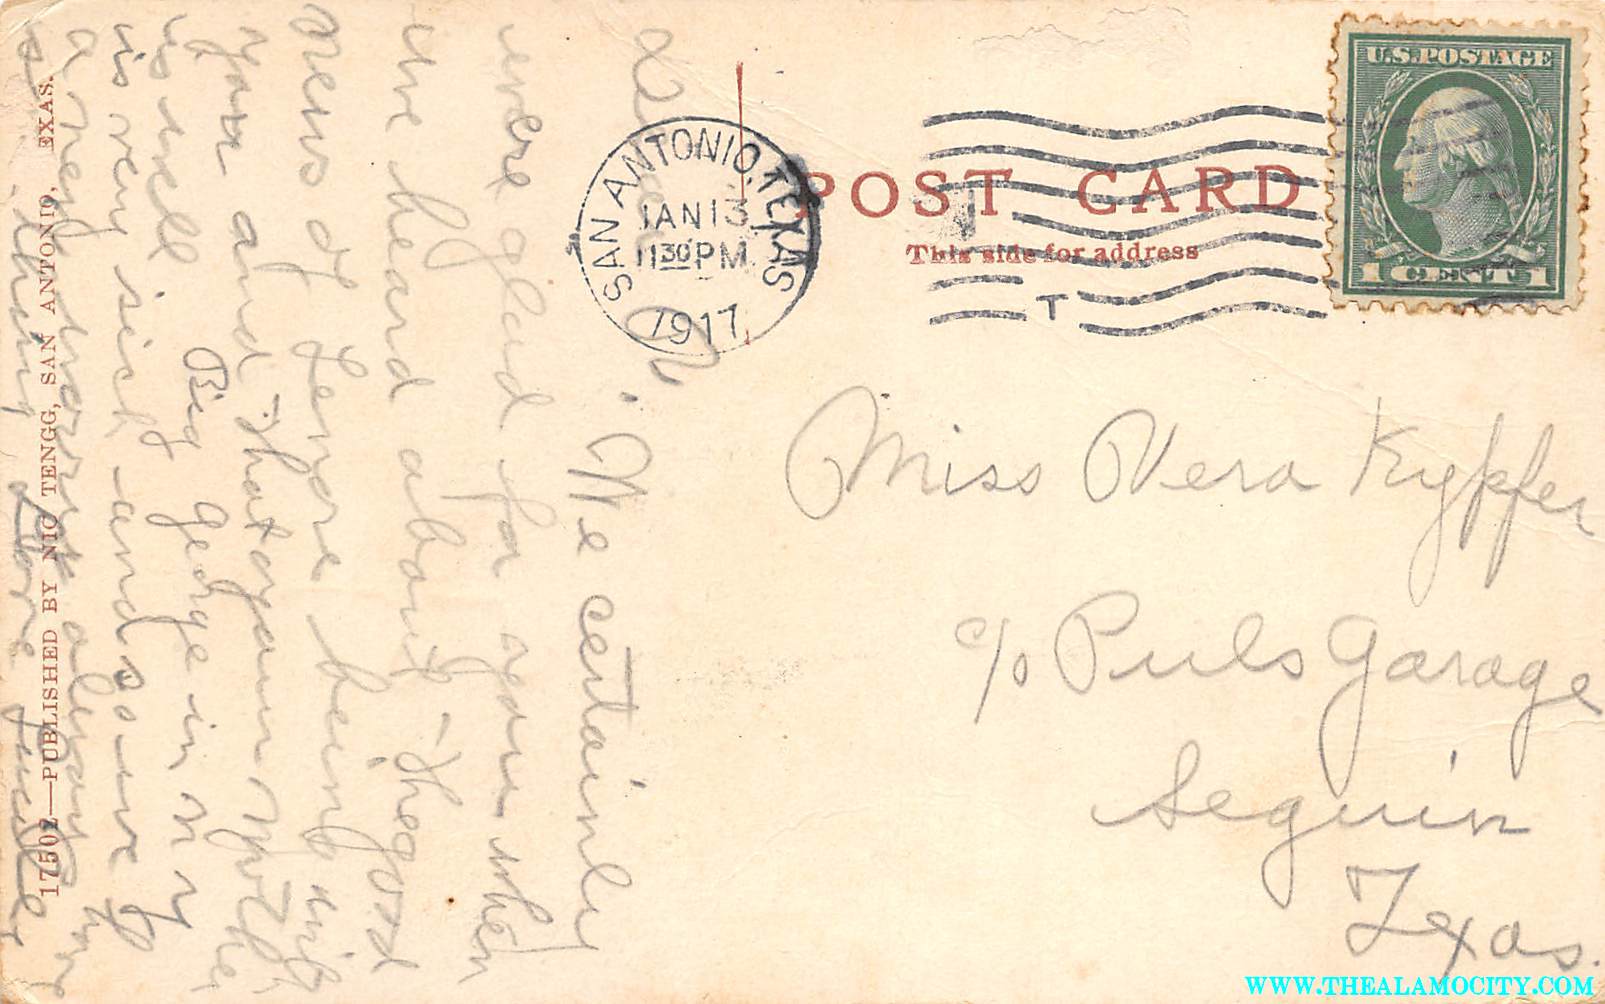 U.S. POSTAGE
1 CENT 1
SAN ANTONIO, TEXAS
JAN 13
11 30 PM
1917
T
POST CARD
This side for address
Miss Vera Kypfer
c/o Puls Garage
Seguin
Texas.
Dear V. We certainly
were glad for you when
we heard about the good
news of Lenore being with
you and that your Mother
is well Big George in N Y
is very sick and some of
a neighbor are always
is Love
17502—PUBLISHED BY NIC TENGG, SAN ANTONIO, TEXAS.
WWW.THEALAMOCITY.COM